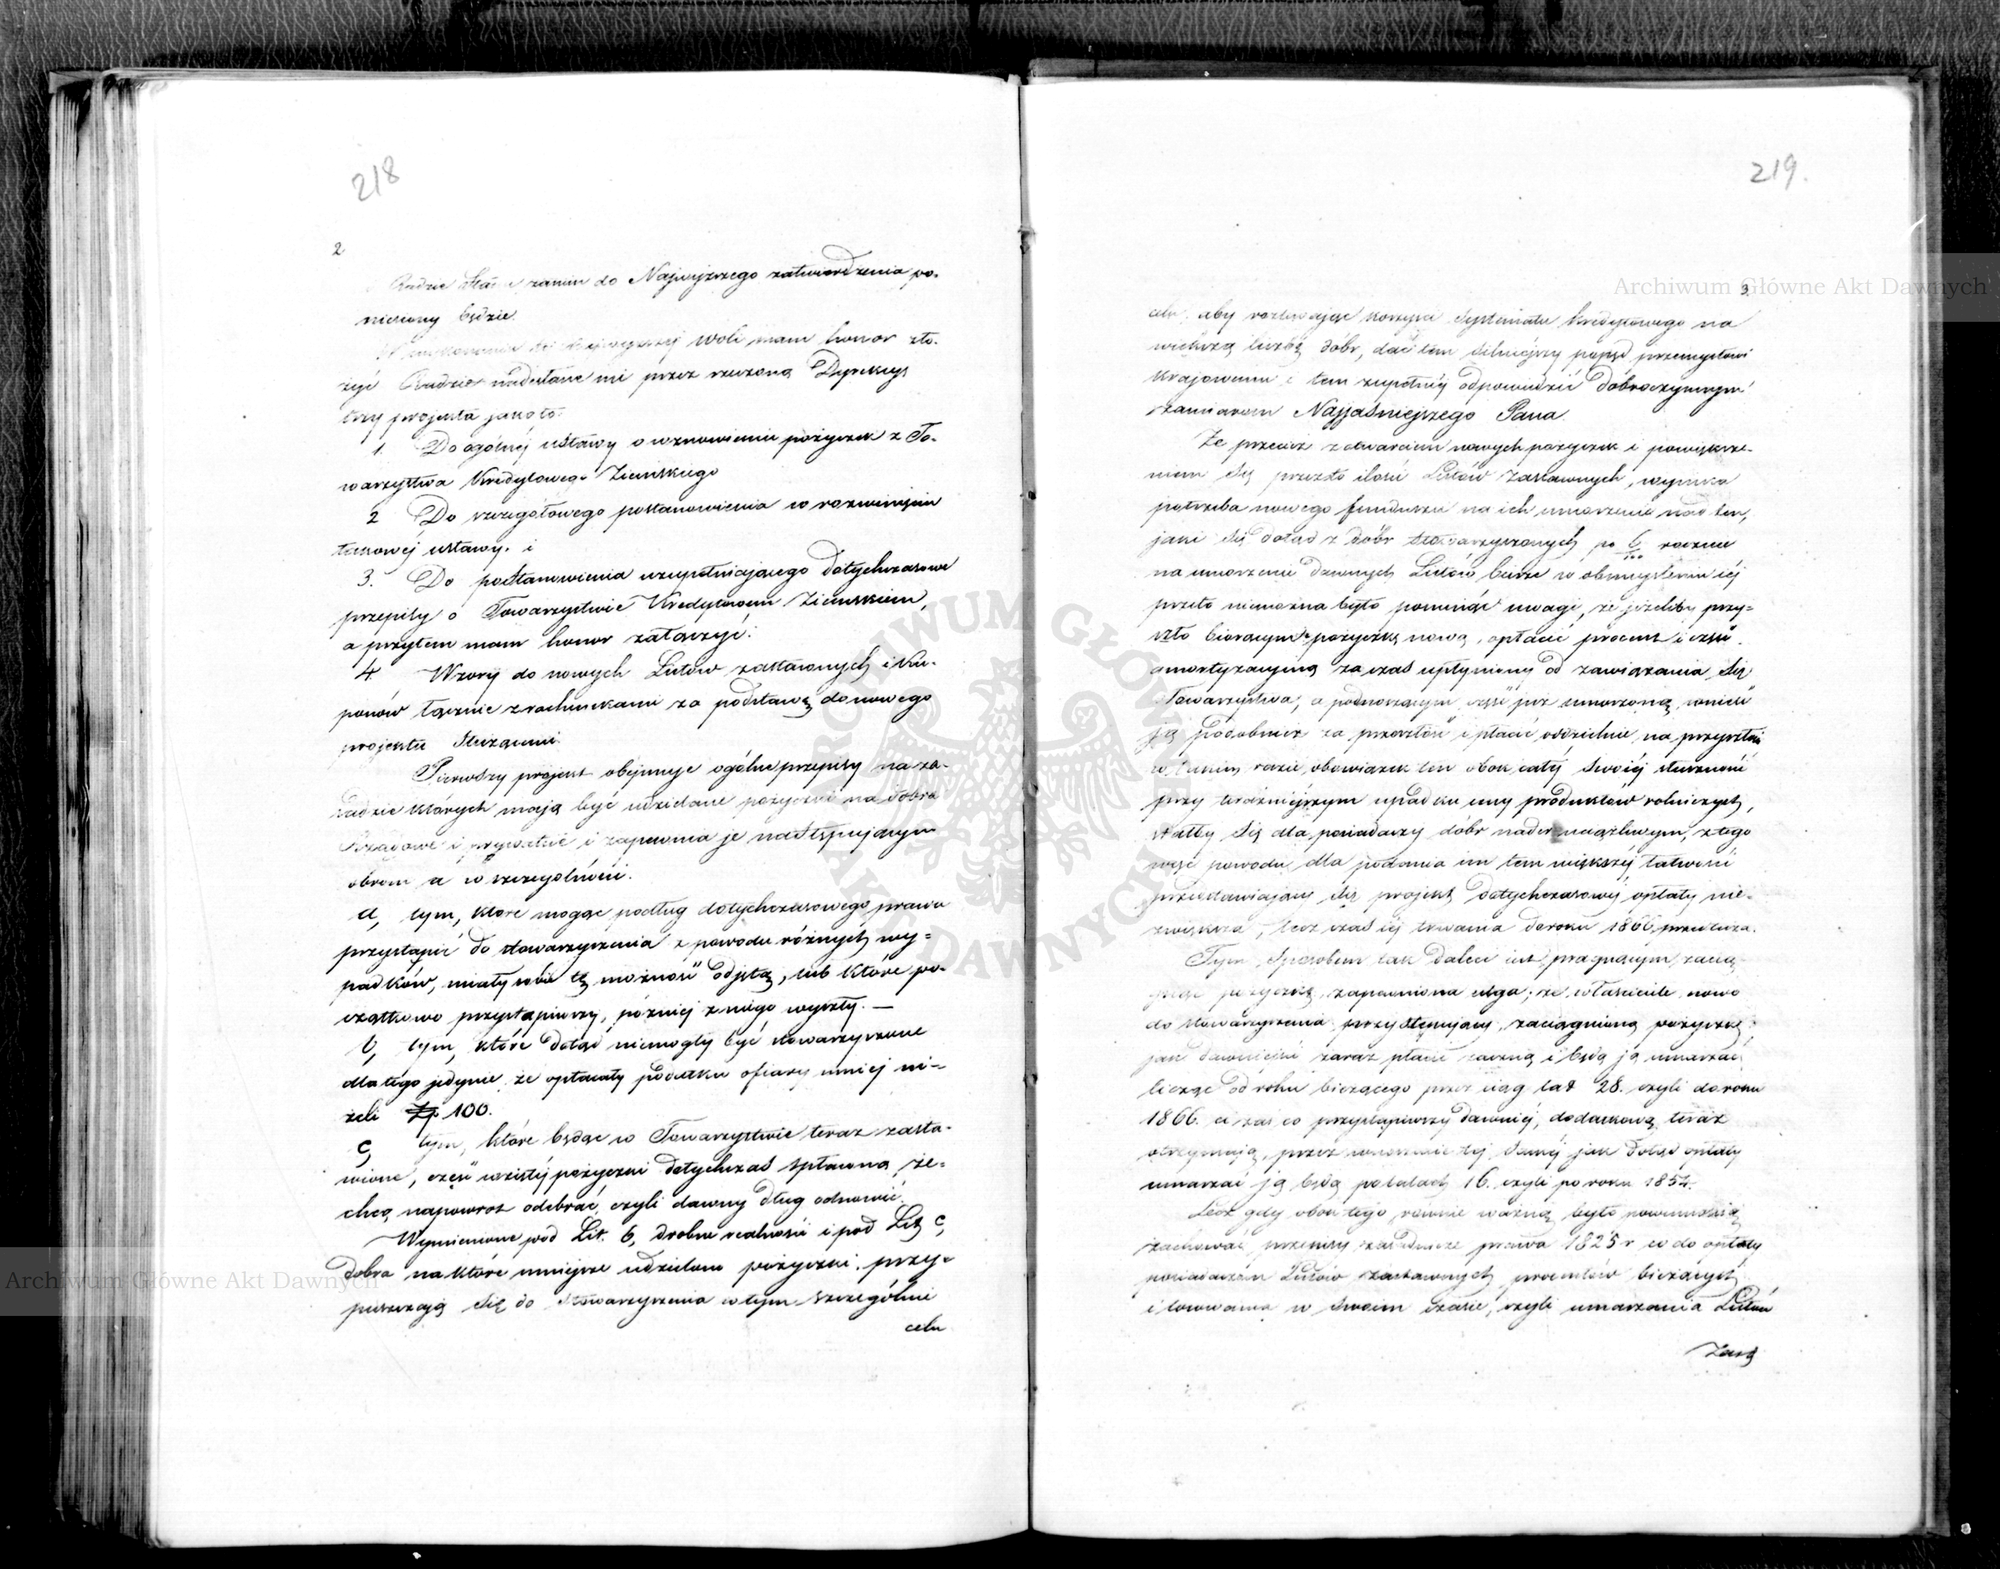 218
2
Radzie Stanu zanim do Najwyższego zatwierdzenia po-
niesiony będzie.
W wykonaniu tej Najwyższej woli mam honor zło-
żyć Radzie nadesłane mi przez rzeczoną Dyrekcyą
trzy projekta jako to:
1. Do ogólnej ustawy o wznowieniu pożyczek z To-
warzystwa Kredytowego Ziemskiego
2 Do szczegółowego postanowienia w rozwinięciu
takowej ustawy. i
3. Do postanowienia uzupełniającego dotychczasowe
przepisy o Towarzystwie Kredytowem Ziemskiem,
a przytem mam honor załączyć:
4 Wzory do nowych Listów zastawnych i Ku-
ponów łącznie z rachunkami za podstawę do nowego
projektu służącemi.
Pierwszy projekt obejmuje ogólne przepisy na za-
sadzie których mają być udzielane pożyczki na dobra
Rządowe i prywatne i zapewnia je następującym
dobrom a w szczególności.
a, tym, które mogąc podług dotychczasowego prawa
przystąpić do stowarzyszenia z powodu różnych wy=
padków, miały sobie tę możność odjętą, lub które po-
czątkowo przystąpiwszy, później z niego wyszły. —
b, tym, które dotąd niemogły być stowarzyszone
dla tego jedynie, że opłacały podatku ofiary mniej ni-
żeli Zp. 100.
c, tym, które będąc w Towarzystwie teraz zasta-
wione, część wziętej pożyczki dotychczas spłaconą, ze-
chcą napowrót odebrać, czyli dawny dług odnowić.
Wymienione pod Lit. b, drobne realności i pod Lit c,
dobra na które mniejsze udzielono pożyczki, przy-
puszczają się do stowarzyszenia w tym szczególnie
celu
219.
3.
celu, aby rozlewając korzyści Systematu Kredytowego na
większą liczbę dóbr, dać tem silniejszy popęd przemysłowi
Krajowemu i tem zupełniej odpowiedzieć dobroczynnym
zamiarom Najjaśniejszego Pana.
Że przecież z otwarciem nowych pożyczek i powiększe-
niem się przezto ilości Listów Zastawnych, wynika
potrzeba nowego funduszu na ich umorzenie nad ten,
jaki się dotąd z dóbr stowarzyszonych po 6/100 rocznie
na umorzenie dawnych Listów bierze w obmyśleniu jej
przeto niemożna było pominąć uwagi, że jeżeliby przy-
szło biorącym pożyczkę nową, opłacić procent i część
amortyzacyjną za czas upłyniony od zawiązania się
Towarzystwa, a podnoszącym część już umorzoną, wnieść
ją podobnież za przeszłość i płacić oddzielnie na przyszłość
w takim razie obowiązek ten obok całej swojej słuszności
przy teraźniejszym upadku ceny produktów rolniczych,
stałby się dla posiadaczy dóbr nader uciążliwym, z tego
więc powodu dla podania im tem większej łatwości
przedstawiający się projekt dotychczasowej opłaty nie-
zwiększa, lecz czas jej trwania do roku 1866 przedłuża.
Tym sposobem tak dalece jest pragnącym zacią-
gnąć pożyczkę, zapewniona ulga; że właściciele nowo
do stowarzyszenia przystępujący, zaciągnioną pożyczkę
jak dawniejsi zaraz płacić zaczną i będą ją umarzać
licząc od roku bieżącego przez ciąg lat 28. czyli do roku
1866. ci zaś co przystąpiwszy dawniej, dodatkową teraz
otrzymają, przez wnoszenie tej samej jak dotąd opłaty
umarzać ją będą po latach 16. czyli po roku 1854.
Lecz gdy obok tego równie ważną było powinnością
zachować przepisy zasadnicze prawa 1825 r co do opłaty
posiadaczom Listów zastawnych procentów bieżących
i losowania w swoim czasie, czyli umarzania Listów
Zast
Archiwum Główne Akt Dawnych
Archiwum Główne Akt Dawnych
ARCHIWUM GŁÓWNE AKT DAWNYCH